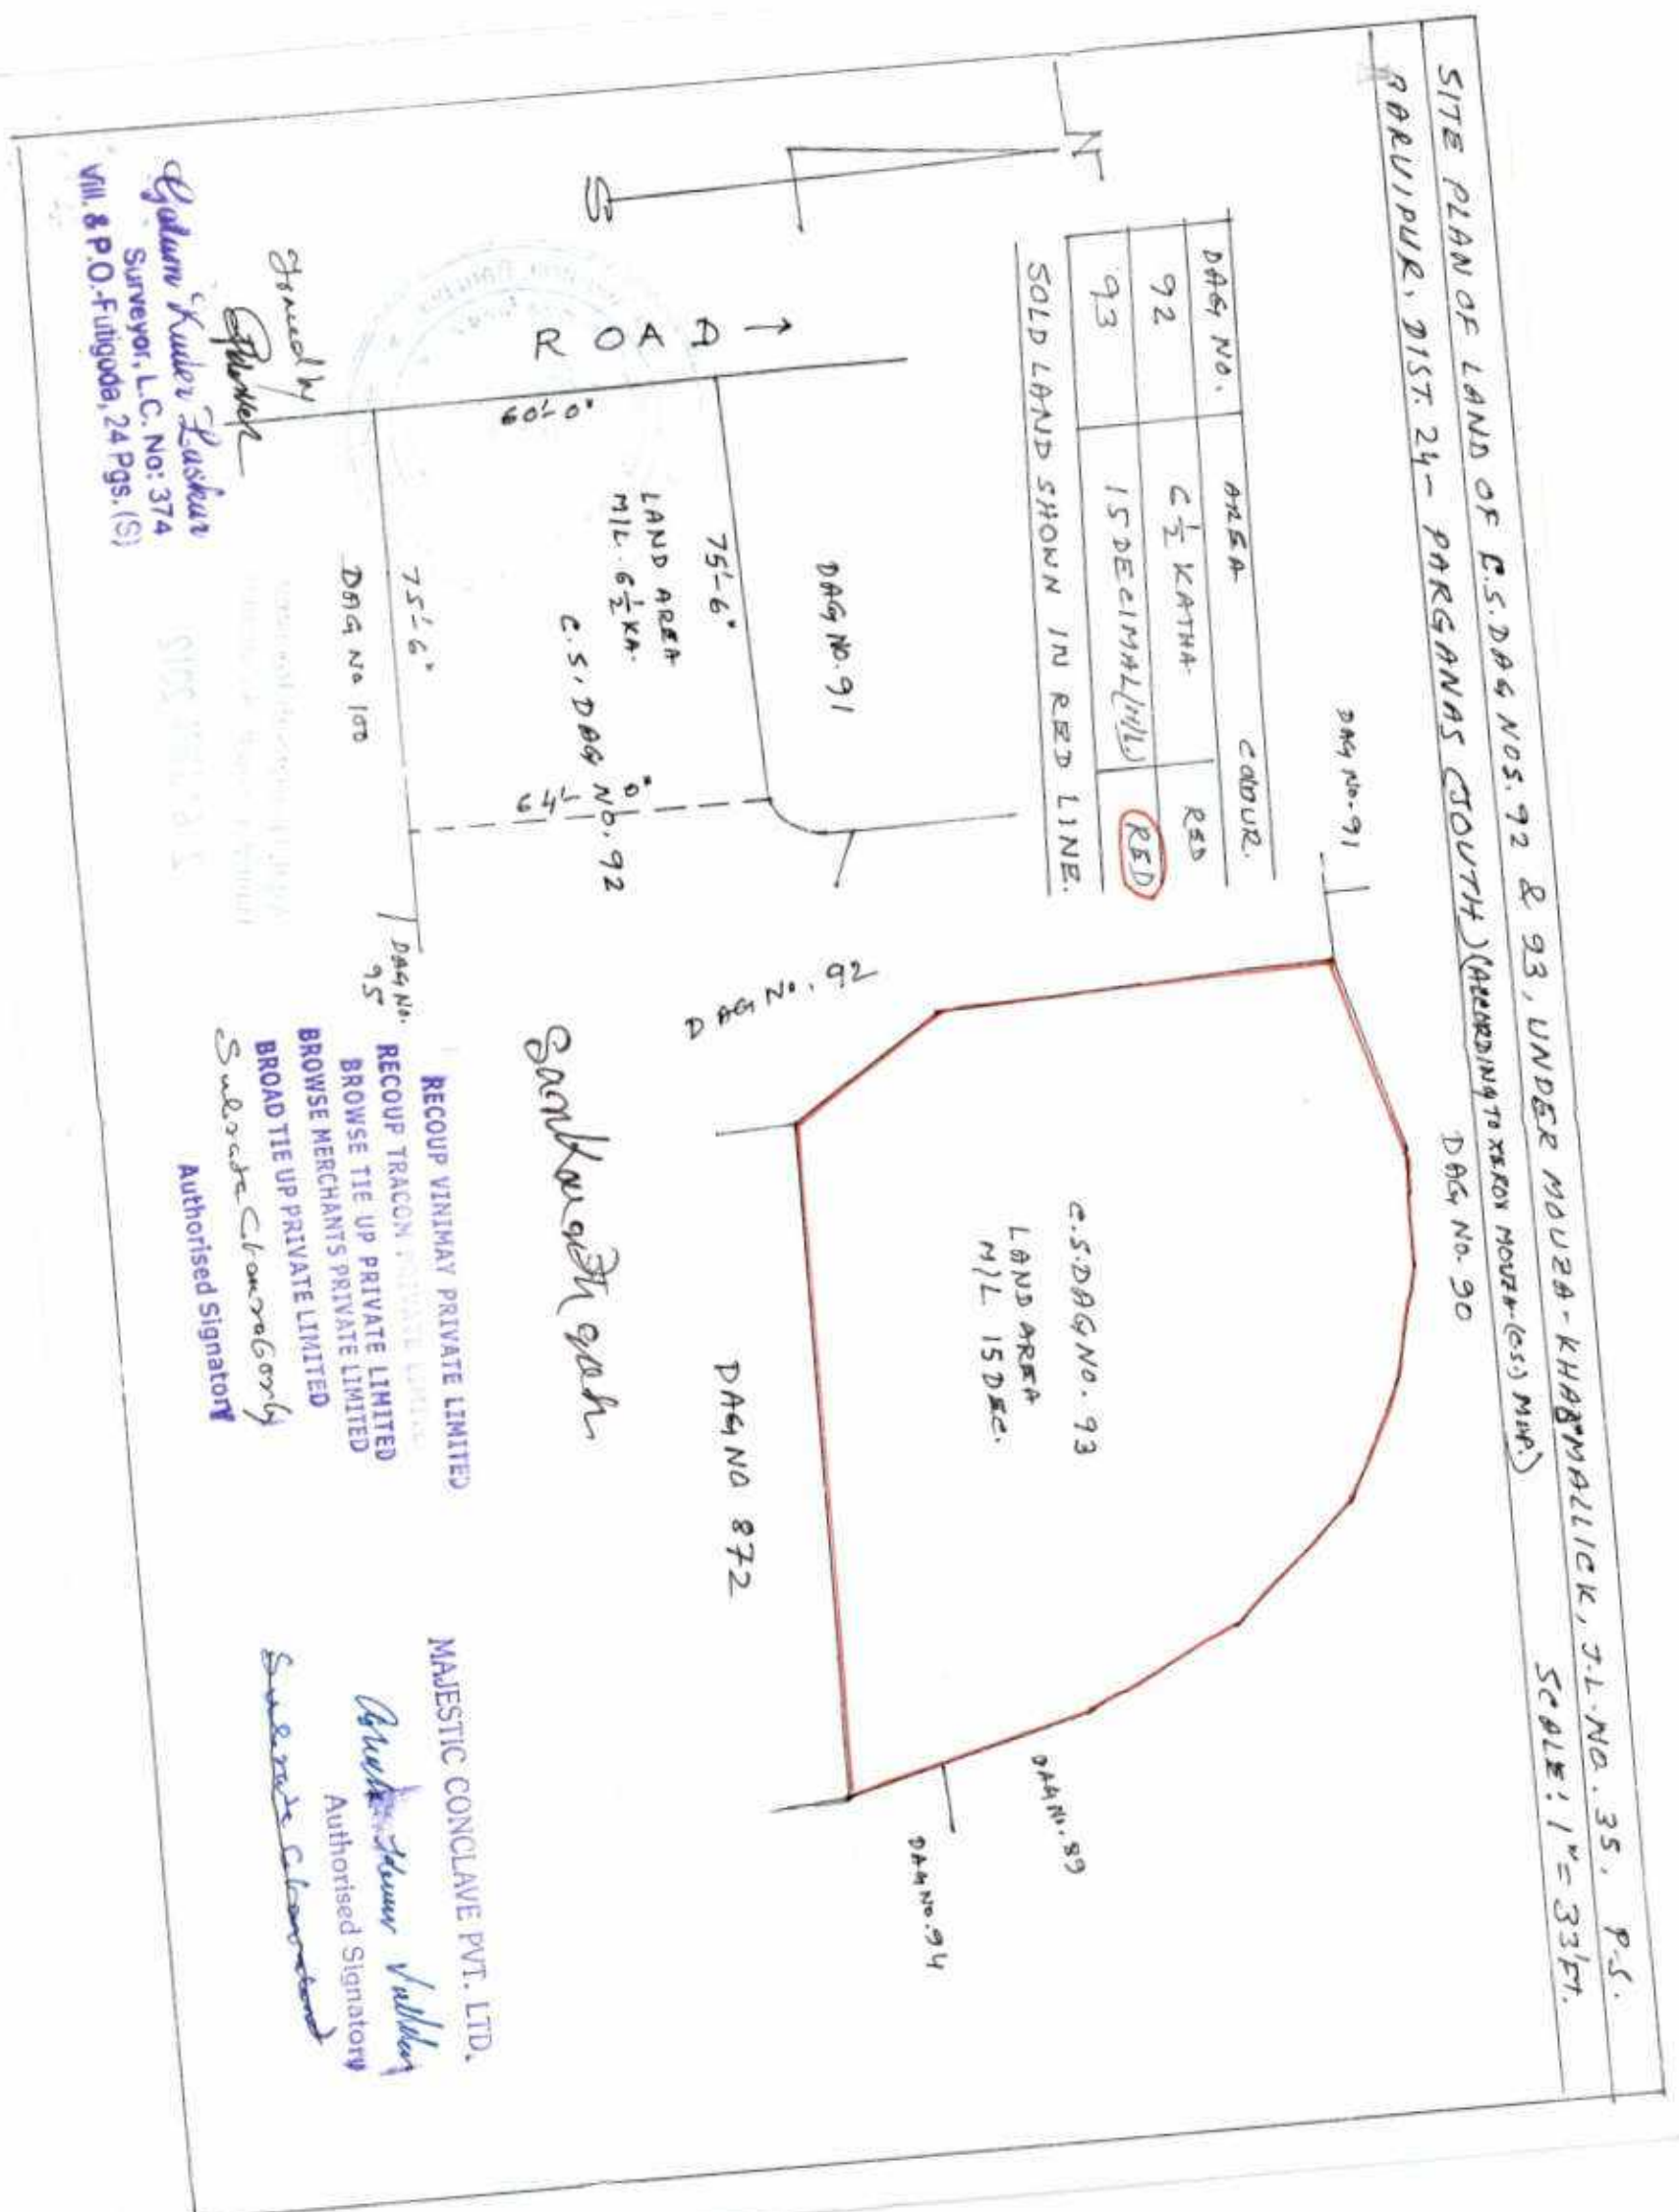 SITE PLAN OF LAND OF C.S. DAG NOS. 92 & 93, UNDER MOUZA - KHARMALLICK, J.L. NO. 35. P.S.
BARUIPUR, DIST. 24 - PARGANAS (SOUTH) (ACCORDING TO XEROX MOUZA (CS) MAP.)
SCALE: 1" = 33' FT.
N
S
DAG NO. AREA COLOUR.
92 6 1/2 KATHA RED
93 15 DECIMAL (M/L) RED
SOLD LAND SHOWN IN RED LINE.
DAG NO. 91
DAG NO. 90
DAG NO. 91
ROAD →
60'-0"
75'-6"
LAND AREA
M/L. 6 1/2 KA.
C.S. DAG NO. 92
64'-0"
75'-6"
DAG NO 100
DAG NO.
95
DAG NO. 92
C.S. DAG NO. 93
LAND AREA
M/L 15 DEC.
DAG NO. 89
DAG NO. 94
DAG NO 872
Surveyor, L.C. No: 374
Vill. & P.O.-Futigoda, 24 Pgs. (S)
RECOUP VINIMAY PRIVATE LIMITED
RECOUP TRACON PRIVATE LIMITED
BROWSE TIE UP PRIVATE LIMITED
BROWSE MERCHANTS PRIVATE LIMITED
BROAD TIE UP PRIVATE LIMITED
Authorised Signatory
MAJESTIC CONCLAVE PVT. LTD.
Authorised Signatory